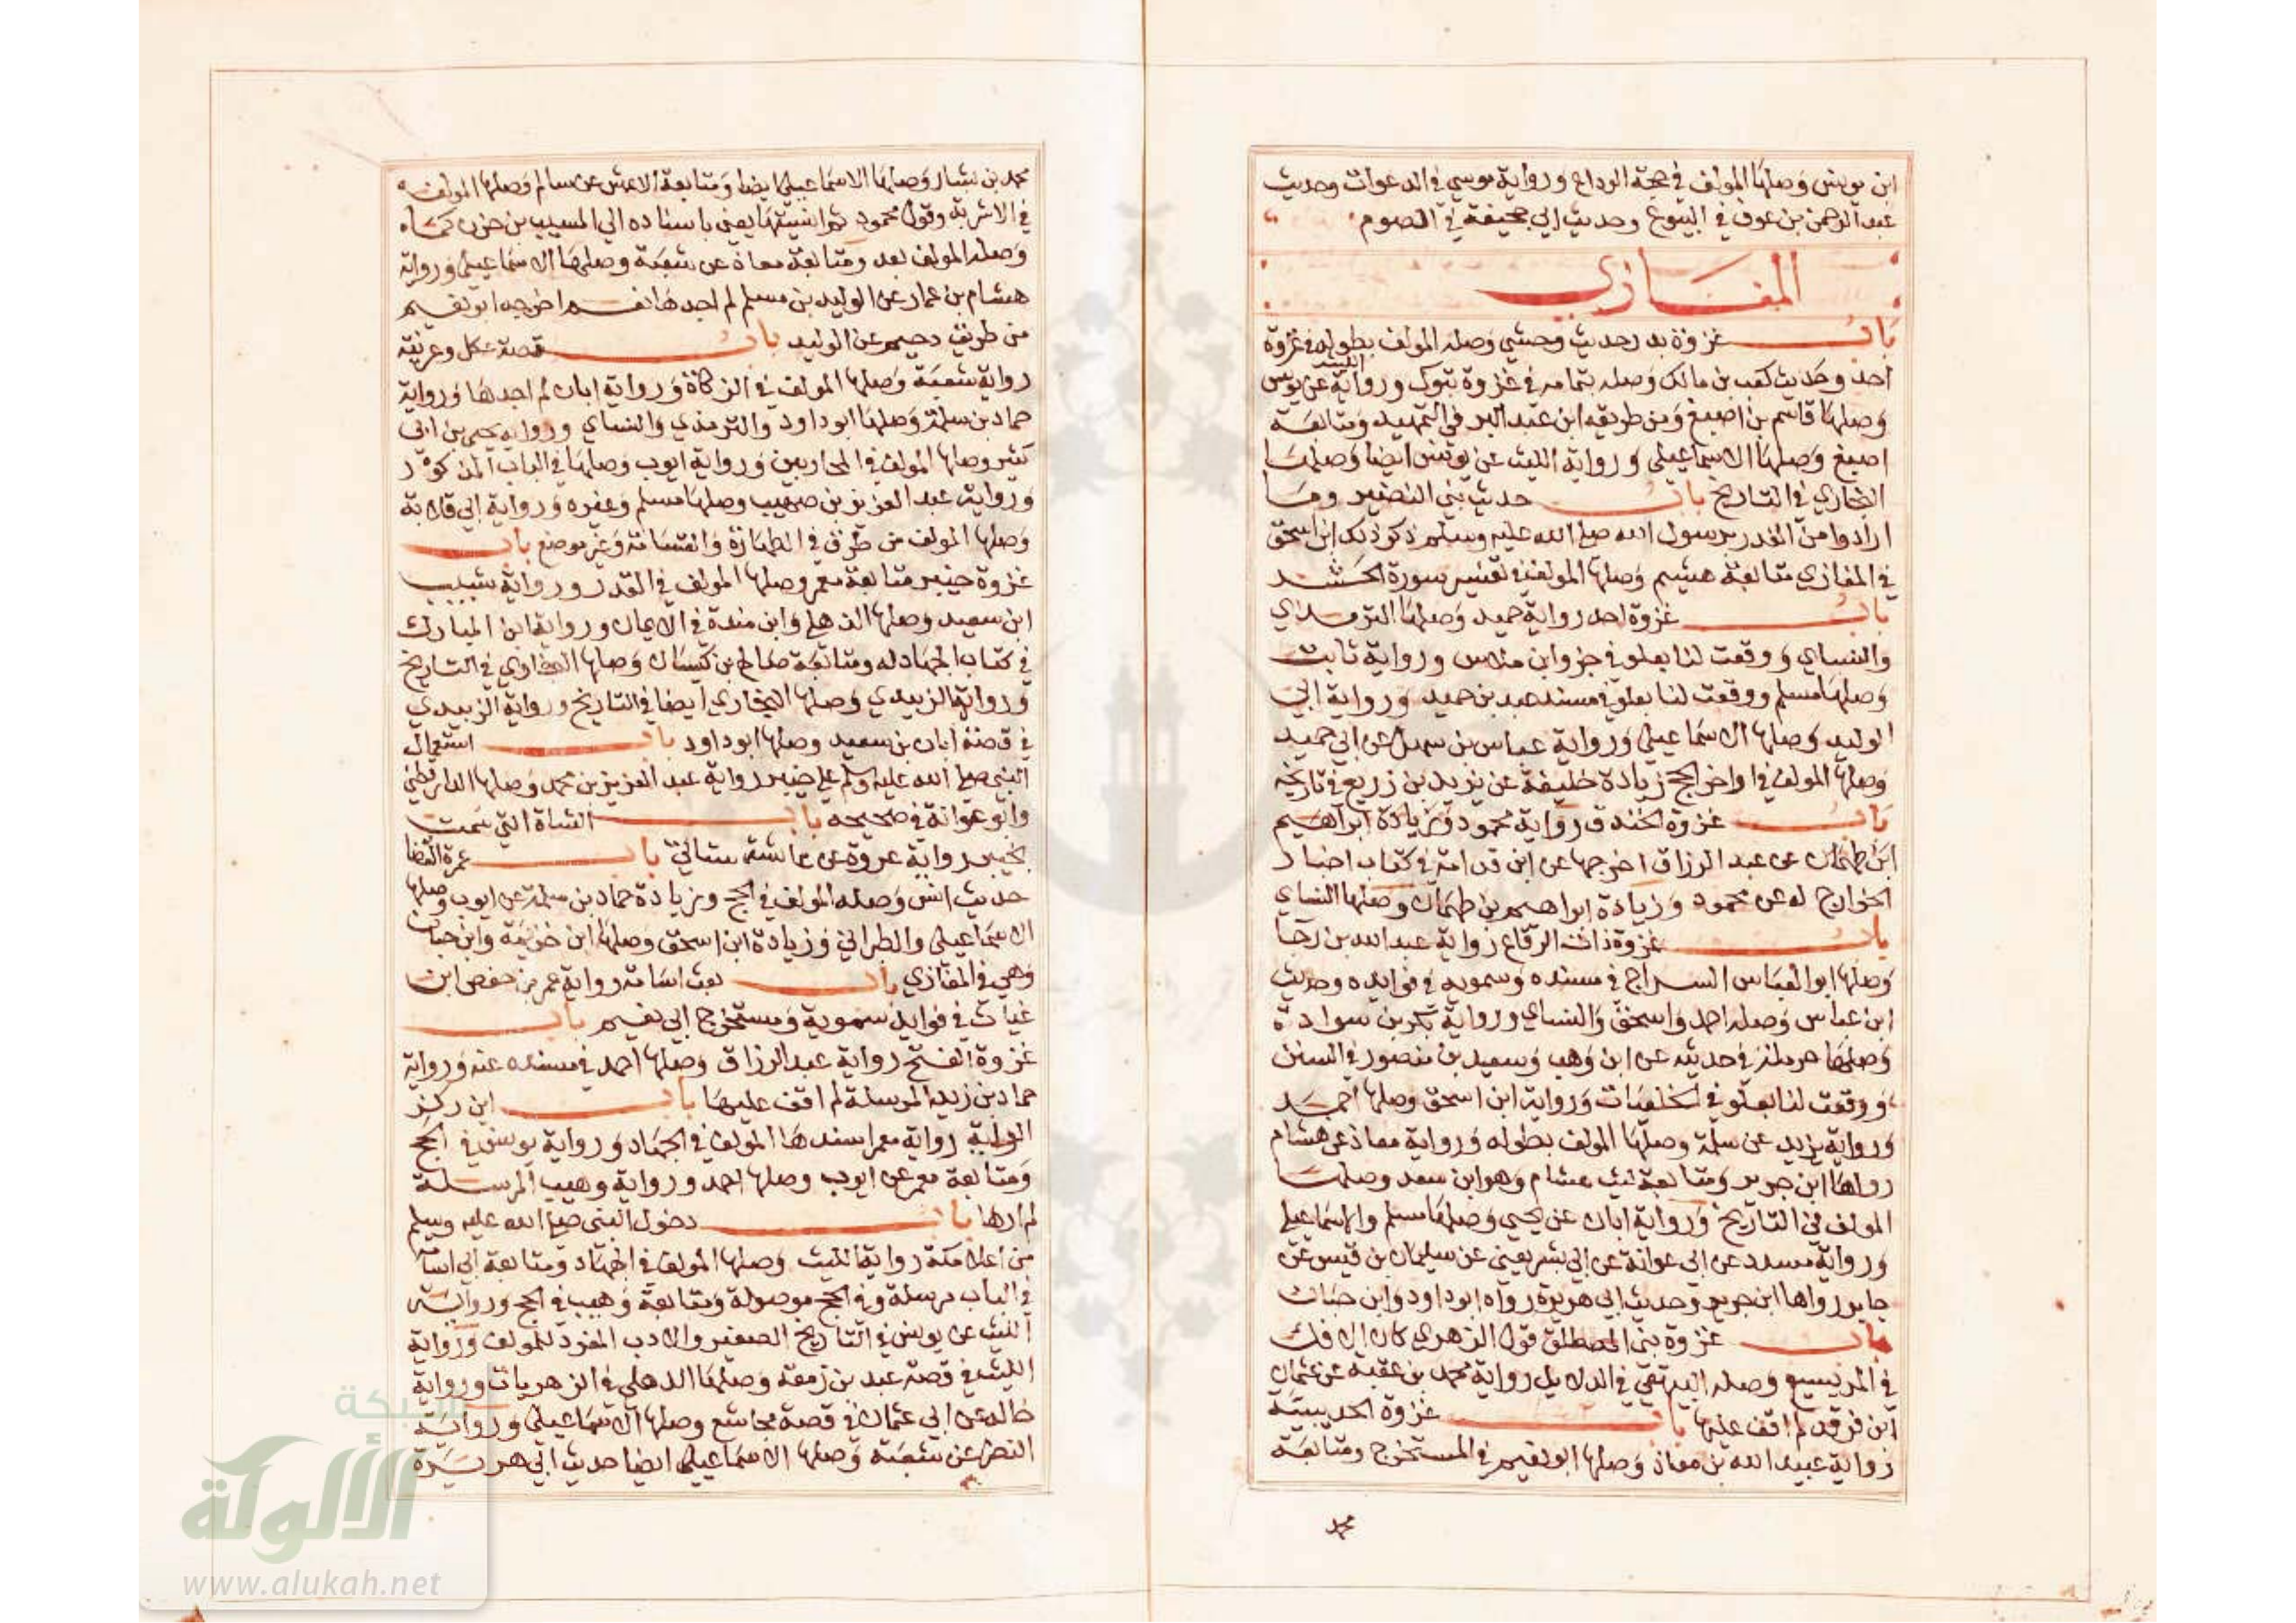 ابن يونس وصلها المولف في حجة الوداع ورواية موسي في الدعوات وحديث
عبد الرحمن بن عوف في البيوع وحديث ابي جحيفة في الصوم
المغازي
باب غزوة بدر حديث وحشي وصله المولف بطوله في غزوة
احد وحديث كعب بن مالك وصله بتمامه في غزوة تبوك ورواية الليث عن يونس
وصلها قاسم بن اصبغ ومن طريقه ابن عبد البر في التمهيد ومتابعة
اصبغ وصلها الاسماعيلي ورواية الليث عن يونس ايضا وصلها
البخاري في التاريخ باب حديث بني النضير وما
ارادوا من الغدر برسول الله صلي الله عليه وسلم ذكر ذلك ابن اسحق
في المغازي متابعة هشيم وصلها المولف في تفسير سورة الحشر
باب غزوة احد رواية حميد وصلها الترمذي
والنساي ووقعت لنا بعلو في جزو ابن ورواية ثابت
وصلها مسلم ووقعت لنا بعلو في مسند عبد بن حميد ورواية ابي
الوليد وصلها الاسماعيلي ورواية عباس بن سهل عن ابي حميد
وصلها المولف في اواخر الحج زيادة خليفة عن يزيد بن زريع في تاريخه
باب غزوة الخندق رواية محمود وزيادة ابراهيم
ابن طهمان عن عبد الرزاق اخرجها عن ابن قدامة في كتاب اخبار
الخوارج له عن محمود وزيادة ابراهيم بن طهمان وصلها النساي
باب غزوة ذات الرقاع رواية عبد الله بن رجا
وصلها ابو العباس السراج في مسنده وسمويه في فوايده وحديث
ابن عباس وصله احمد واسحق والنساي ورواية بكر بن سوادة
وصلها حرملة في حديثه عن ابن وهب وسعيد بن منصور في السنن
ووقعت لنا بعلو في الخلعيات ورواية ابن اسحق وصلها احمد
ورواية يزيد عن سلمة وصلها المولف بطوله ورواية معاذ عن هشام
رواها ابن جرير ومتابعة ليث هشام وهو ابن سعد وصلها
المولف في التاريخ ورواية ابان عن يحيي وصلها مسلم والاسماعيلي
ورواية مسدد عن ابي عوانة عن ابي بشر يعني عن سليمان بن قيس عن
جابر رواها ابن جرير وحديث ابي هريرة رواه ابو داود وابن حبان
باب غزوة بني المصطلق قول الزهري كان الافك
في المريسيع وصله البيهقي في الدلايل رواية محمد بن عقبة عن عثمان
ابن فرقد لم اقف عليها باب غزوة الحديبية
رواية عبيد الله بن معاذ وصلها ابو نعيم في المستخرج ومتابعة
محمد
محمد بن بشار وصلها الاسماعيلي ايضا ومتابعة الاعمش عن سالم وصلها المولف
في الاشربة وقول محمود ثم انسيتها يعني باسناده الي المسيب بن حزن كما
وصله المولف بعد ومتابعة معاذ عن شعبة وصلها الاسماعيلي ورواية
هشام بن عمار عن الوليد بن مسلم لم اجدها نعم اخرجه ابو نعيم
من طريق دحيم عن الوليد باب قصة عكل وعرينة
رواية شعبة وصلها المولف في الزكاة ورواية ابان لم اجدها ورواية
حماد بن سلمة وصلها ابو داود والترمذي والنساي ورواية يحيي بن ابي
كثير وصلها المولف في المحاربين ورواية ايوب وصلها في الباب المذكور
ورواية عبد العزيز بن صهيب وصلها مسلم وغيره ورواية ابي قلابة
وصلها المولف من طرق في الطهارة والقسامة وغير موضع باب
غزوة خيبر متابعة معمر وصلها المولف في القدر ورواية شبيب
ابن سعيد وصلها الذهلي وابن مندة في الايمان ورواية ابن المبارك
في كتاب الجهاد له ومتابعة صالح بن كيسان وصلها البخاري في التاريخ
ورواية الزبيدي وصلها البخاري ايضا في التاريخ ورواية الزبيدي
في قصة ابان بن سعيد وصلها ابو داود باب استعمال
النبي صلي الله عليه وسلم علي خيبر رواية عبد العزيز بن محمد وصلها الدارقطني
وابو عوانة في صحيحه باب الشاة التي سمت
بخيبر رواية عروة عن عايشة ستاتي باب عمرة القضا
حديث انس وصله المولف في الحج وزيادة حماد بن سلمة عن ايوب وصلها
الاسماعيلي والطبراني وزيادة ابن اسحق وصلها ابن خزيمة وابن حبان
وهي في المغازي باب بعث اسامة رواية عمر بن حفص ابن
غياث في فوايد سمويه ومستخرج ابي نعيم باب
غزوة الفتح رواية عبد الرزاق وصلها احمد في مسنده عنه ورواية
حماد بن زيد المرسلة لم اقف عليها باب اين ركز
الراية رواية معمر اسندها المولف في الجهاد ورواية يونس في الحج
ومتابعة معمر عن ايوب وصلها احمد ورواية وهيب المرسلة
لم ارها باب دخول النبي صلي الله عليه وسلم
من اعلا مكة رواية الليث وصلها المولف في الجهاد ومتابعة ابي اسامة
في الباب مرسلة وفي الحج موصولة ومتابعة وهيب في الحج ورواية
الليث عن يونس في التاريخ الصغير والادب المفرد للمولف ورواية
الليث في قصة عبد بن زمعة وصلها الذهلي في الزهريات ورواية
خالد عن ابي عثمان في قصة مجاشع وصلها الاسماعيلي ورواية
النضر عن شعبة وصلها الاسماعيلي ايضا حديث ابي هريرة
شبكة
الألوكة
www.alukah.net